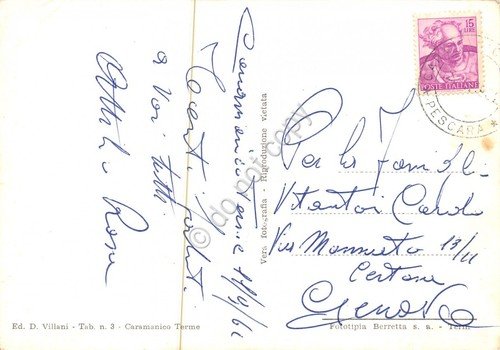 Caramanico Terme 11/9/62
Tanti saluti
a voi tutti
Attilio Rosa
15
LIRE
POSTE ITALIANE
PESCARA *
Per la Famigli.
Vitantoi Carlo
Via 13/11
Certosa
Genova
Vera fotografia - Riproduzione vietata
do not copy
Ed. D. Villani - Tab. n. 3 - Caramanico Terme
Fototipia Berretta s. a. - Terni